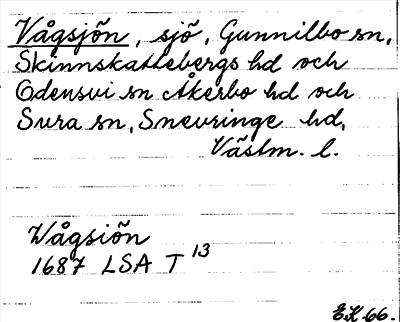 Vågsjön, sjö, Gunnilbo sn,
Skinnskattebergs hd och
Odensvi sn Åkerbo hd och
Sura sn, Snevringe hd,
Västm. l.
Wågsiön
1687 LSA T 13
E.K 66.